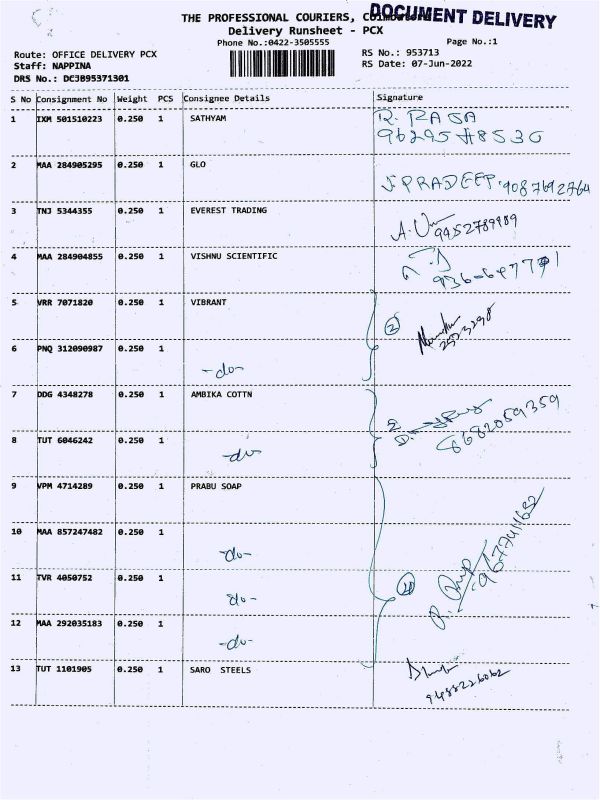 DOCUMENT DELIVERY
THE PROFESSIONAL COURIERS, Coimbatore
Delivery Runsheet - PCX
Phone No.:0422-3505555
Page No.:1
Route: OFFICE DELIVERY PCX
Staff: NAPPINA
DRS No.: DCJB95371301
RS No.: 953713
RS Date: 07-Jun-2022
S No Consignment No Weight PCS Consignee Details Signature
1 IXM 501510223 0.250 1 SATHYAM R. RAJA
2 MAA 284905295 0.250 1 GLO J. PRADEEP. 9087692764
3 TNJ 5344355 0.250 1 EVEREST TRADING 9952789989
4 MAA 284904855 0.250 1 VISHNU SCIENTIFIC
5 VRR 7071820 0.250 1 VIBRANT 2
6 PNQ 312090987 0.250 1 -do-
7 DDG 4348278 0.250 1 AMBIKA COTTN 2 8682059359
8 TUT 6046242 0.250 1 -do-
9 VPM 4714289 0.250 1 PRABU SOAP
10 MAA 857247482 0.250 1 -do-
11 TVR 4050752 0.250 1 -do- 4
12 MAA 292035183 0.250 1 -do-
13 TUT 1101905 0.250 1 SARO STEELS 9488226062